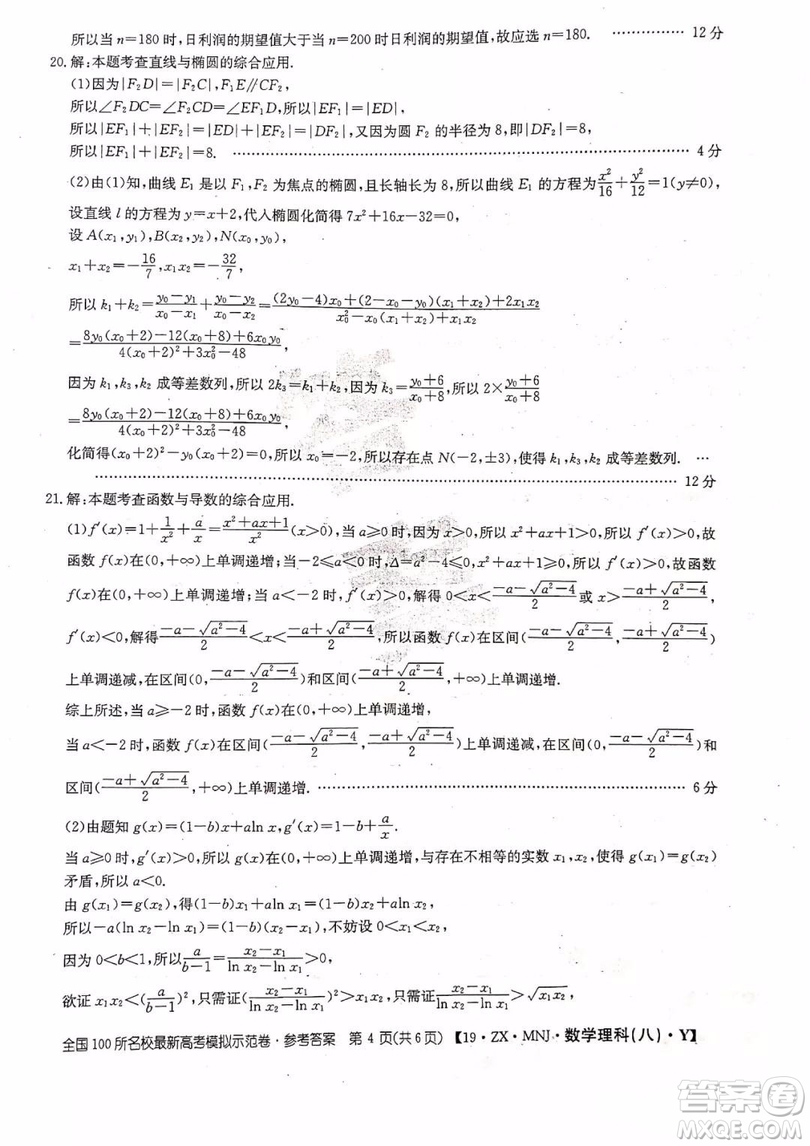 所以当 n=180 时,日利润的期望值大于当 n=200 时日利润的期望值,故应选 n=180. …………… 12 分
20. 解:本题考查直线与椭圆的综合应用.
(1)因为|F₂D|=|F₂C|,F₁E∥CF₂,
所以∠F₂DC=∠F₂CD=∠EF₁D,所以|EF₁|=|ED|,
所以|EF₁|+|EF₂|=|ED|+|EF₂|=|DF₂|,又因为圆 F₂ 的半径为 8,即|DF₂|=8,
所以|EF₁|+|EF₂|=8. …………… 4 分
(2)由(1)知,曲线 E₁ 是以 F₁,F₂ 为焦点的椭圆,且长轴长为 8.所以曲线 E₁ 的方程为 x²/16+y²/12=1(y≠0).
设直线 l 的方程为 y=x+2,代入椭圆化简得 7x²+16x-32=0,
设 A(x₁,y₁),B(x₂,y₂),N(x₀,y₀),
x₁+x₂=-16/7,x₁x₂=-32/7,
所以 k₁+k₂=(y₀-y₁)/(x₀-x₁)+(y₀-y₂)/(x₀-x₂)=[(2y₀-4)x₀+(2-x₀-y₀)(x₁+x₂)+2x₁x₂]/[x₀²-x₀(x₁+x₂)+x₁x₂]
=[8y₀(x₀+2)-12(x₀+8)+6x₀y₀]/[4(x₀+2)²+3x₀²-48]
因为 k₁,k₃,k₂ 成等差数列,所以 2k₃=k₁+k₂,又因为 k₃=(y₀+6)/(x₀+8),所以 2×(y₀+6)/(x₀+8)
=[8y₀(x₀+2)-12(x₀+8)+6x₀y₀]/[4(x₀+2)²+3x₀²-48]
化简得(x₀+2)²-y₀(x₀+2)=0,所以 x₀=-2,所以存在点 N(-2,±3),使得 k₁,k₃,k₂ 成等差数列. …
…………… 12 分
21. 解:本题考查函数与导数的综合应用.
(1)f′(x)=1+1/x²+a/x=(x²+ax+1)/x²(x>0),当 a≥0 时,因为 x>0,所以 x²+ax+1>0,所以 f′(x)>0,故
函数 f(x)在(0,+∞)上单调递增;当-2≤a<0 时,Δ=a²-4≤0,x²+ax+1≥0,所以 f′(x)≥0,故函数
f(x)在(0,+∞)上单调递增;当 a<-2 时,f′(x)>0,解得 0<x<(-a-√(a²-4))/2 或 x>(-a+√(a²-4))/2,
f′(x)<0,解得(-a-√(a²-4))/2<x<(-a+√(a²-4))/2,所以函数 f(x)在区间((-a-√(a²-4))/2,(-a+√(a²-4))/2)
上单调递减,在区间(0,(-a-√(a²-4))/2)和区间((-a+√(a²-4))/2,+∞)上单调递增.
综上所述,当 a≥-2 时,函数 f(x)在(0,+∞)上单调递增,
当 a<-2 时,函数 f(x)在区间((-a-√(a²-4))/2,(-a+√(a²-4))/2)上单调递减,在区间(0,(-a-√(a²-4))/2)和
区间((-a+√(a²-4))/2,+∞)上单调递增. …………… 6 分
(2)由题知 g(x)=(1-b)x+aln x,g′(x)=(1-b)+a/x.
当 a≥0 时,g′(x)>0,g(x)在(0,+∞)上单调递增,与存在不相等的实数 x₁,x₂,使得 g(x₁)=g(x₂)
矛盾,所以 a<0.
由 g(x₁)=g(x₂),得(1-b)x₁+aln x₁=(1-b)x₂+aln x₂,
所以-a(ln x₂-ln x₁)=(1-b)(x₂-x₁),不妨设 0<x₁<x₂,
因为 0<b<1,所以 a/(b-1)=(x₂-x₁)/(ln x₂-ln x₁)>0,
欲证 x₁x₂<(a/(b-1))²,只需证((x₂-x₁)/(ln x₂-ln x₁))²>x₁x₂,只需证(x₂-x₁)/(ln x₂-ln x₁)>√(x₁x₂),
全国 100 所名校最新高考模拟示范卷·参考答案 第 4 页(共 6 页) 【19·ZX·MNJ·数学理科(八)·Y】
答案圈
MXQE.COM